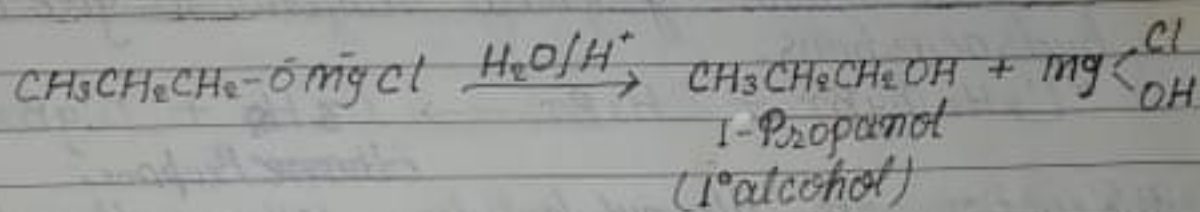 CH₃CH₂CH₂-ŌMgCl H₂O/H⁺ → CH₃CH₂CH₂OH + Mg< Cl OH
1-Propanol
(1°alcohol)